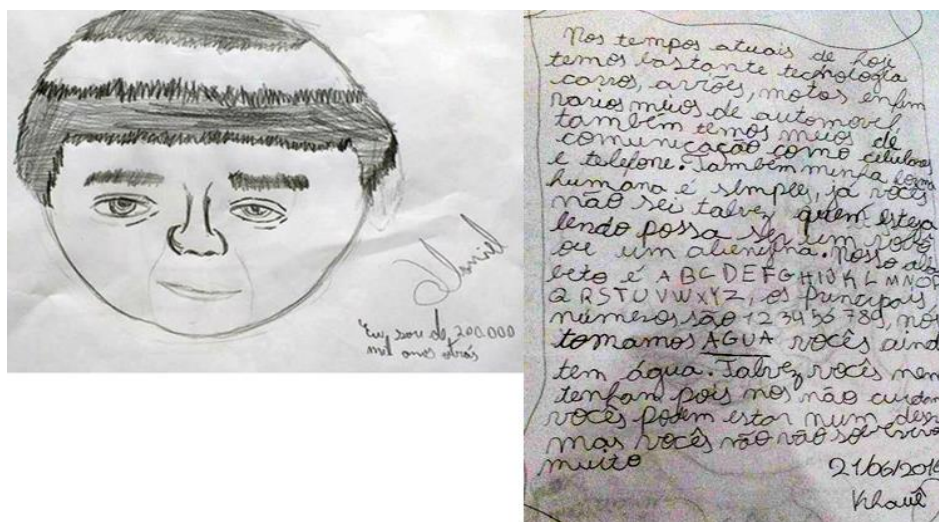 "Eu sou de 200.000
mil anos atrás
Nos tempos atuais de hoje
temos bastante tecnologia
carros, aviões, motos enfim
varios meios de automovel
também temos meios de
comunicação como celulares
e telefone. Também minha forma
humana é simples, já vocês
não sei talvez quem esteja
lendo possa ser um robô
ou um alienigna. Nosso alfa
beto é A B C D E F G H I J K L M N O P
Q R S T U V W X Y Z, os principais
números são 1 2 3 4 5 6 7 8 9, nós
tomamos ÁGUA vocês aind
tem água. Talvez vocês nem
tenham pois nos não cuidam
vocês podem estar num des
mas vocês não vão sobreviv
muito
21/06/201
Khauê